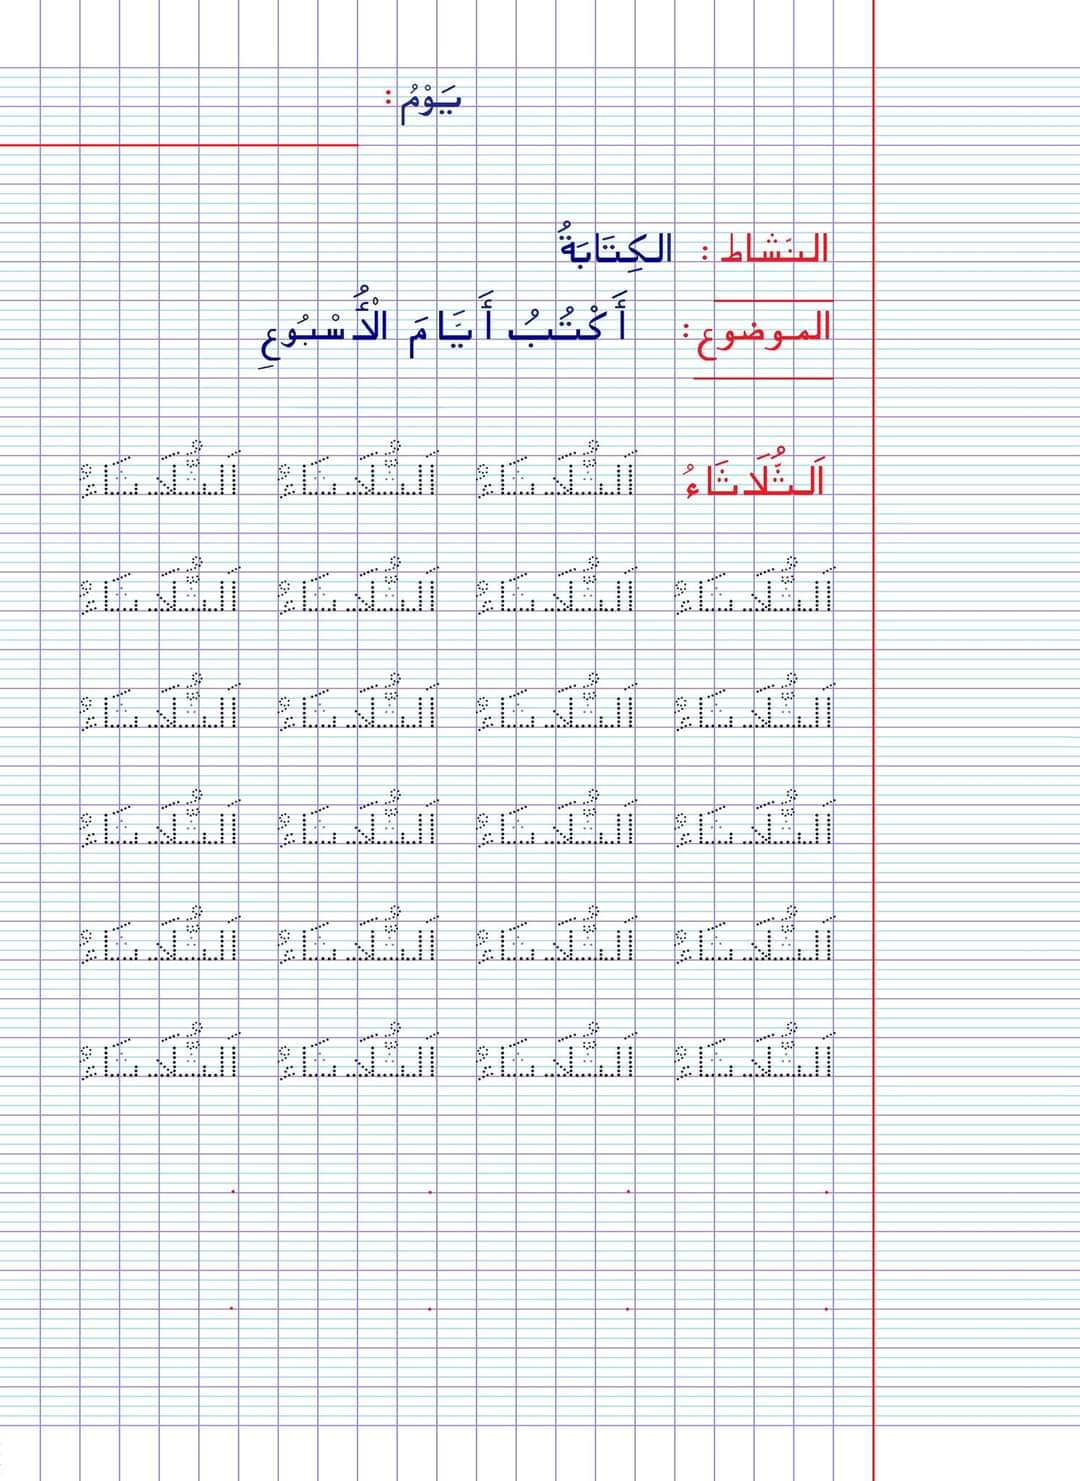 يَوْمُ :
النَشاط : الكِتَابَةُ
الموضوع : أَكْتُبُ أَيَامَ الْأُسْبُوعِ
اَلثُّلَاثَاءُ اَلثُّلَاثَاءُ اَلثُّلَاثَاءُ اَلثُّلَاثَاءُ
اَلثُّلَاثَاءُ اَلثُّلَاثَاءُ اَلثُّلَاثَاءُ اَلثُّلَاثَاءُ
اَلثُّلَاثَاءُ اَلثُّلَاثَاءُ اَلثُّلَاثَاءُ اَلثُّلَاثَاءُ
اَلثُّلَاثَاءُ اَلثُّلَاثَاءُ اَلثُّلَاثَاءُ اَلثُّلَاثَاءُ
اَلثُّلَاثَاءُ اَلثُّلَاثَاءُ اَلثُّلَاثَاءُ اَلثُّلَاثَاءُ
اَلثُّلَاثَاءُ اَلثُّلَاثَاءُ اَلثُّلَاثَاءُ اَلثُّلَاثَاءُ